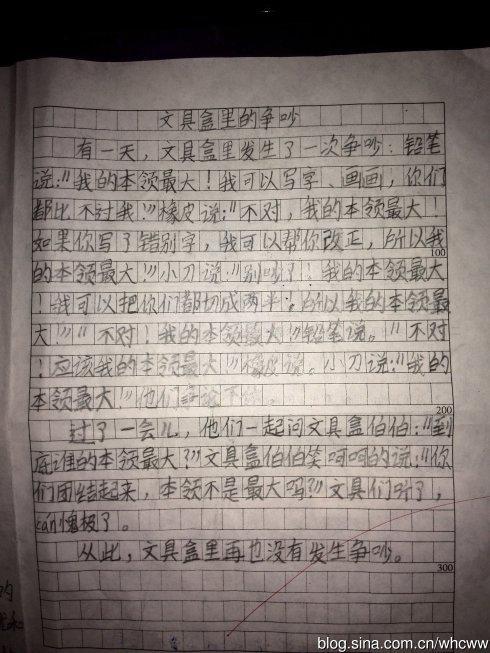 文具盒里的争吵
有一天，文具盒里发生了一次争吵：铅笔
说：“我的本领最大！我可以写字、画画，你们
都比不过我！”橡皮说：“不对，我的本领最大！
如果你写了错别字，我可以帮你改正，所以我
100
的本领最大！”小刀说：“别吵了！我的本领最大
！我可以把你们都切成两半。所以我的本领最
大！”“不对！我的本领最大！”铅笔说。“不对
！应该我的本领最大！”橡皮说。小刀说：“我的
本领最大！”他们争论不
200
过了一会儿，他们一起问文具盒伯伯：“到
底谁的本领最大？”文具盒伯伯笑呵呵的说：“你
们团结起来，本领不是最大吗？”文具们听了，
cán愧极了。
从此，文具盒里再也没有发生争吵。
300
blog.sina.com.cn/whcww